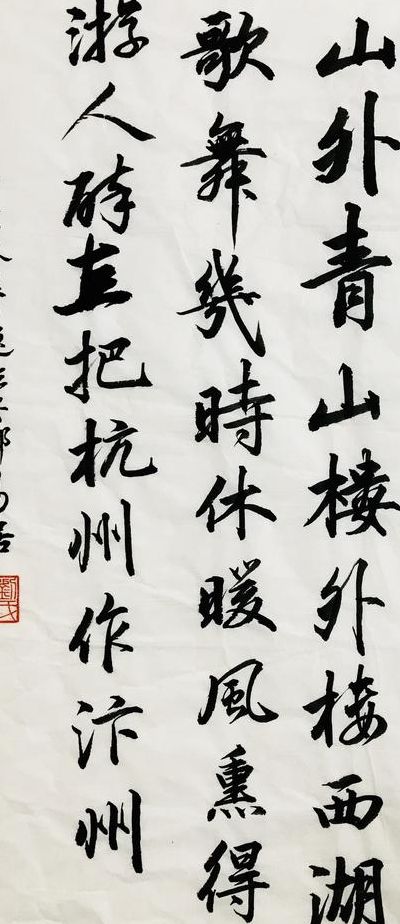 山外青山樓外樓西湖
歌舞幾時休暖風熏得
游人醉直把杭州作汴州